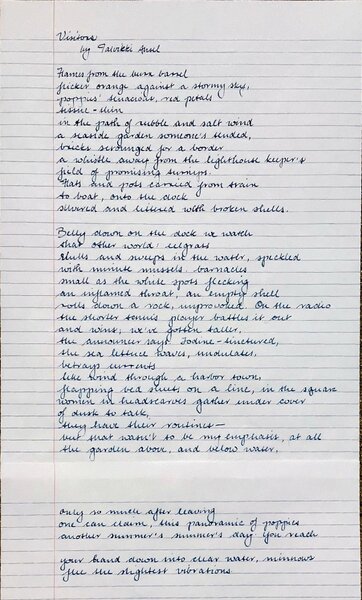 Visitors
by Talvikki Ansel
Flames from the burn barrel
flicker orange against a stormy sky,
poppies' tenacious, red petals
tissue-thin
in the path of rubble and salt wind
a seaside garden someone's tended,
bricks scrounged for a border
a whistle away from the lighthouse keeper's
field of promising turnips.
Flats and pots carried from train
to boat, onto the dock
silvered and littered with broken shells.
Belly down on the dock we watch
that other world: eelgrass
shifts and sweeps in the water, speckled
with minute mussels, barnacles
small as the white spots flecking
an inflamed throat, an empty shell
rolls down a rock, unprovoked. On the radio
the shorter tennis player battles it out
and wins, we've gotten taller,
the announcer says. Iodine-tinctured,
the sea lettuce waves, undulates,
betrays currents
like wind through a harbor town,
flapping bed sheets on a line, in the square
women in headscarves gather under cover
of dusk to talk,
they have their routines—
but that wasn't to be my emphasis, at all
the garden above, and below water,
only so much after leaving
one can claim, this panoramic of poppies
another summer's summer's day you reach
your hand down into clear water, minnows
flee the slightest vibrations